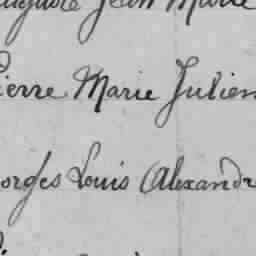 Auguste Jean Marie
Pierre Marie Julien
Georges Louis Alexandre